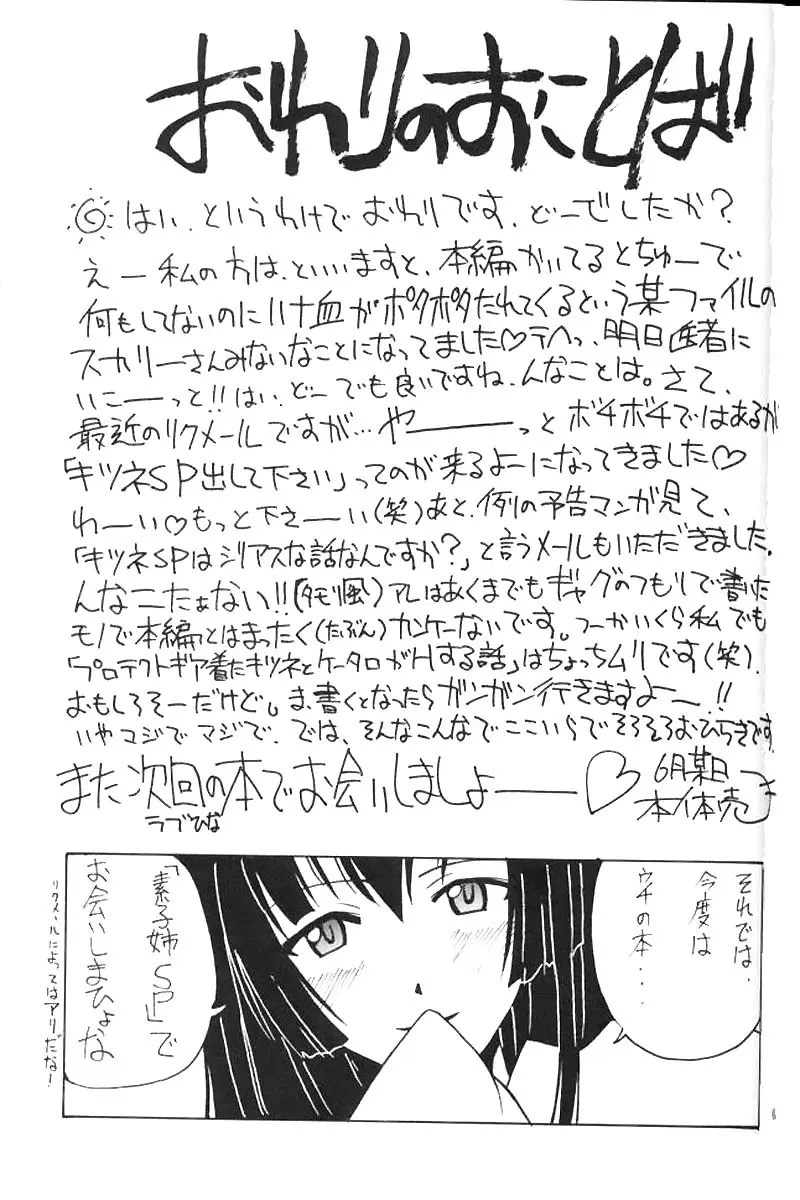 おわりのおことば
はい、というわけでおわりです、どーでしたか？
えー私の方は、といいますと、本編かいてるとちゅーで
何もしてないのにハナ血がポタポタたれてくるという某ファイルの
スカリーさんみないなことになってました♡テヘっ、明日医者に
いこーーっと!!はい、どーでも良いですね、んなことは。さて、
最近のリクメールですが…やーーーっとボチボチではあるが
「キツネSP出して下さい」ってのが来るよーになってきました♡
わーい♡もっと下さーい(笑)あと、例の予告マンガ見て、
「キツネSPはシリアスな話なんですか？」と言うメールもいただきました。
んなこたぁない!!(タモリ風)アレはあくまでもギャグのつもりで書いた
モノで本編とはまったく(たぶん)カンケーないです。つーかいくら私でも
「プロテクトギア着たキツネとケータロがHする話」はちょっちムリです(笑)、
おもしろそーだけど。ま、書くとなったらガンガン行きますよー!!
いやマジでマジで、では、そんなこんなでここいらでそろそろおひらきです
また次回の本でお会いしましょーーー♡
ラブひな
6月某日
本体売つき
それでは、
今度は
ウチの本・・・
「素子姉SP」で
お会いしまひょな
リクメールによってはアリだな！